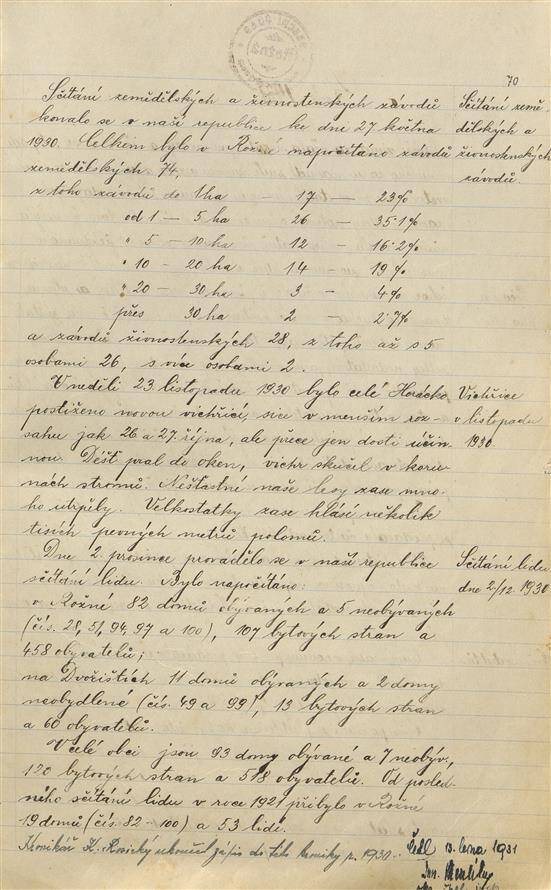 70
Sčítání zemědělských a živnostenských závodů
konalo se v naší republice ke dni 27 května
1930. Celkem bylo v Rožné napočítáno závodů
zemědělských 74,
z toho závodů do 1 ha — 17 — 23%
od 1 — 5 ha 26 — 35·1%
" 5 — 10 ha 12 — 16·2%
" 10 — 20 ha 14 — 19%
" 20 — 30 ha 3 — 4%
přes 30 ha 2 — 2·7%
a závodů živnostenských 28, z toho až s 5
osobami 26, s více osobami 2.
Sčítání země
dělských a
živnostenských
závodů.
V neděli 23. listopadu 1930 bylo celé Horácko
postiženo novou vichřicí, sice v menším roz-
sahu jak 26 a 27. října, ale přece jen dosti účin
nou. Déšť pral do oken, vichr skučel v koru-
nách stromů. Nešťastné naše lesy zase mno-
ho utrpěly. Velkostatky zase hlásí několik
tisích pevných metrů polomů.
Vichřice
v listopadu
1930
Dne 2 prosince provádělo se v naší republice
sčítání lidu. Bylo napočítáno:
v Rožné 82 domů obývaných a 5 neobývaných
(čís. 28, 51, 94, 97 a 100), 107 bytových stran a
458 obyvatelů;
na Dvořištích 11 domů obývaných a 2 domy
neobydlené (čís. 49 a 99), 13 bytových stran
a 60 obyvatelů.
V celé obci jsou 93 domy obývané a 7 neobýv.,
120 bytových stran a 518 obyvatelů. Od posled-
ního sčítání lidu v roce 1921 přibylo v Rožné
19 domů (čís. 82 - 100) a 53 lidí.
Sčítání lidu
dne 2/12. 1930
Kronikář K. Rosický ukončil zápis do této kroniky r. 1930.
Četl 13. 1931